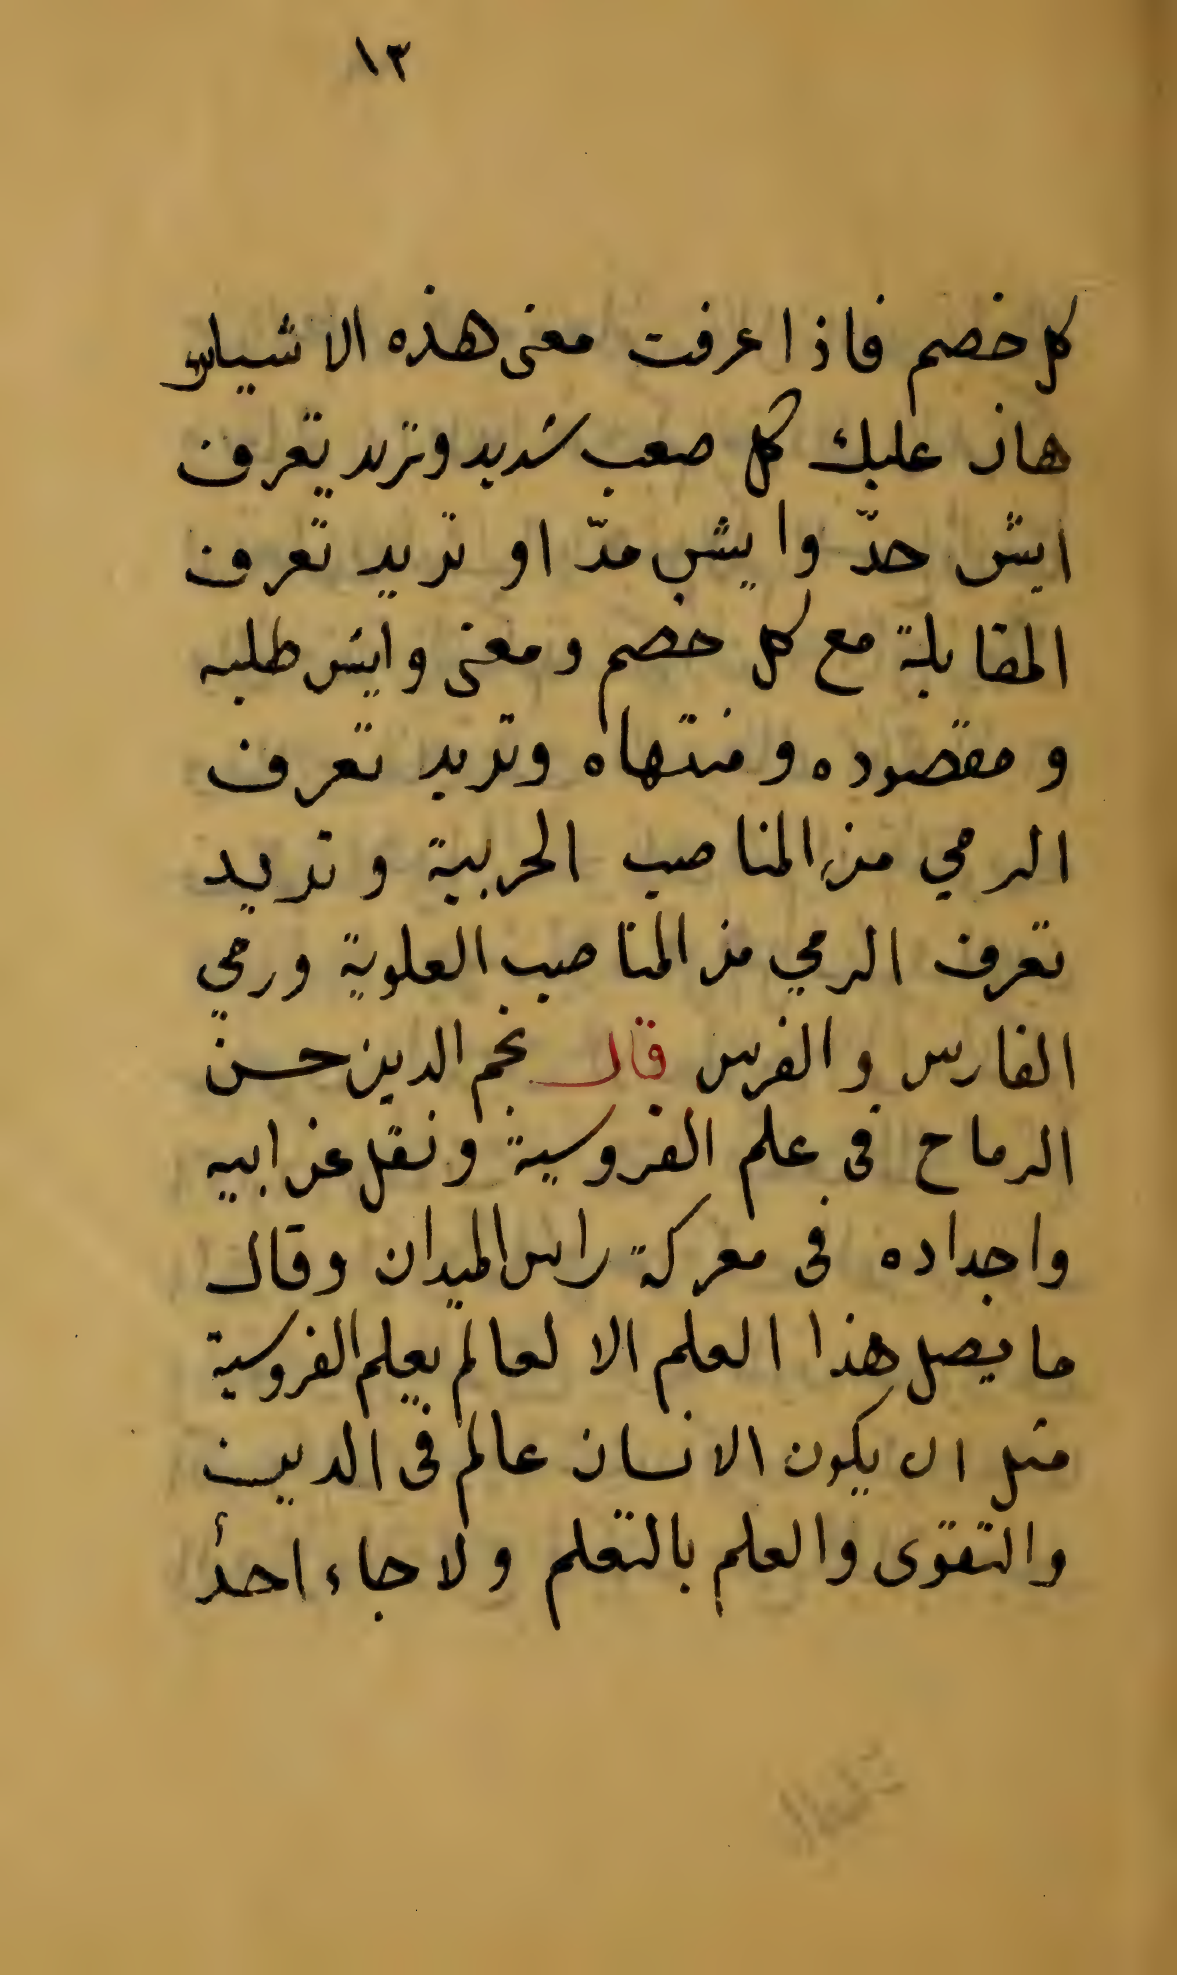 ١٣
كل خصم فاذا عرفت معنى هذه الاشياء
هان عليك كل صعب شديد وتريد تعرف
ايش حدّ وايش مدّ او تريد تعرف
المقابلة مع كل خصم ومعنى وايش طلبه
ومقصوده ومنتهاه وتريد تعرف
الرمي من المناصب الحربية وتريد
تعرف الرمي من المناصب العلوية ورمي
الفارس والفرس قال نجم الدين حسن
الرماح في علم الفروسية ونقل عن ابيه
واجداده في معركة راس الميدان وقال
ما يصل هذا العلم الا لعالم بعلم الفروسية
مثل ان يكون الانسان عالم في الدين
والتقوى والعلم بالتعلم ولا جاء احد